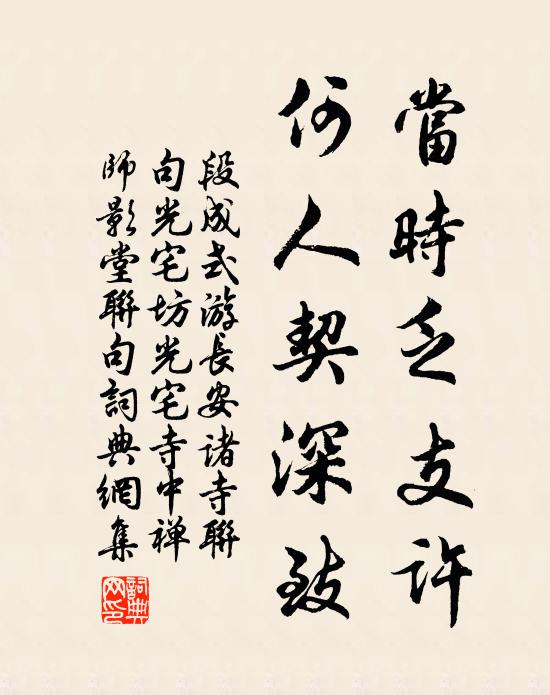 當時乏支許
何人契深致
段成式游長安诸寺聯
句光宅坊光宅寺中禅
師影堂聯句詞典網集